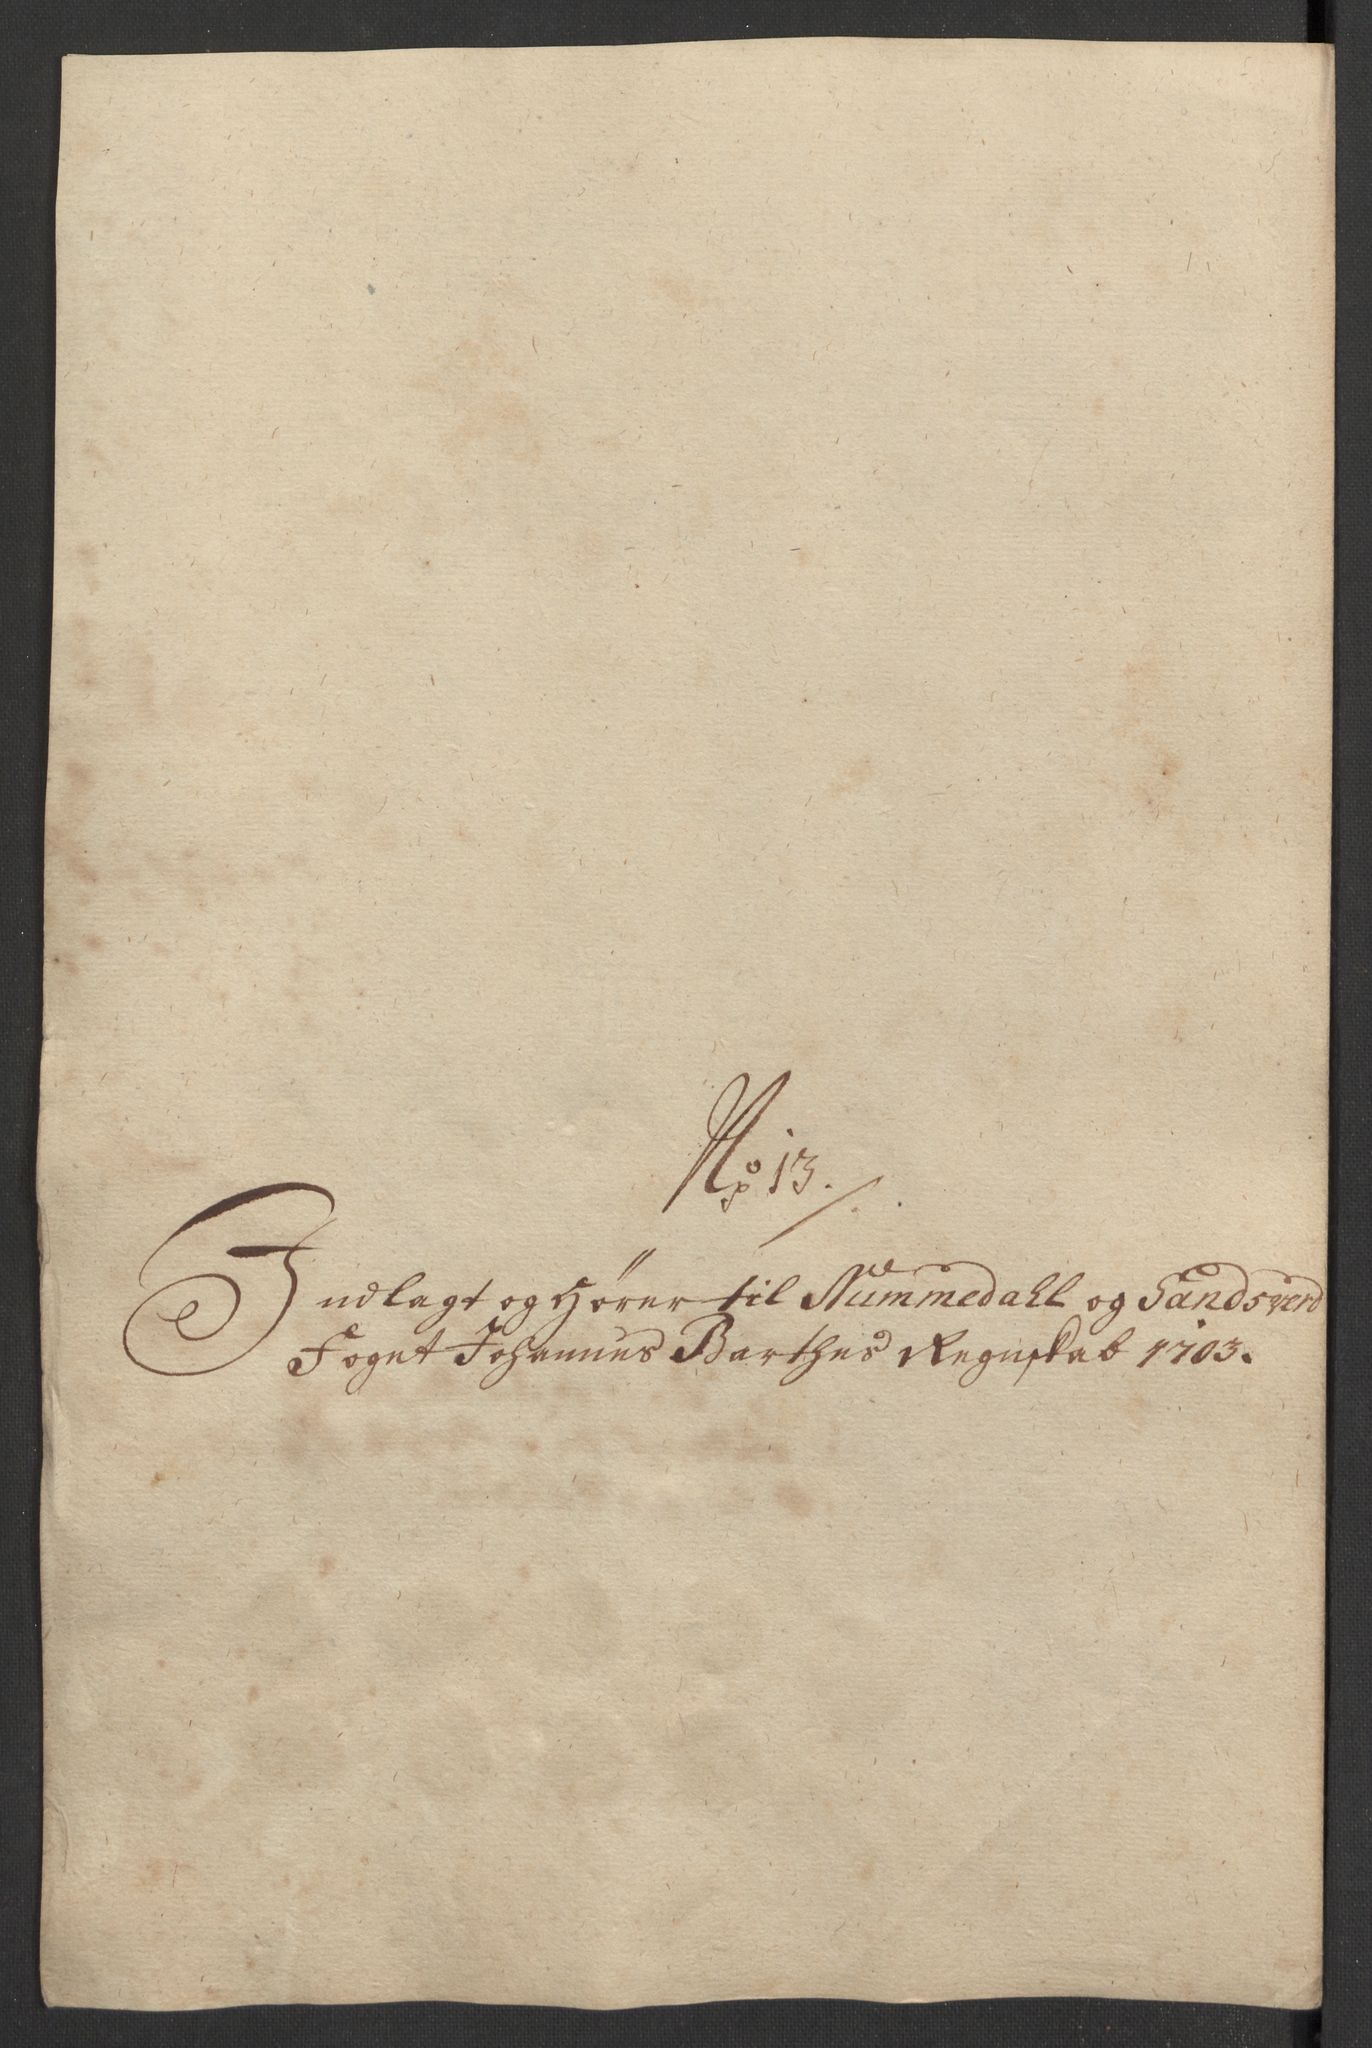 No 13.
Indlagt og hører til Nummedahl og Sandsverd
Foget Johannes Barthes Regnskab 1703.